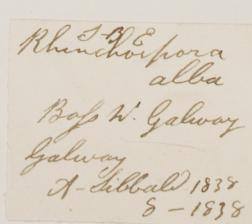 I R E
Rhinchospora
alba
Bogs W. Galway
Galway
A- Sibbald 1838
8 - 1838